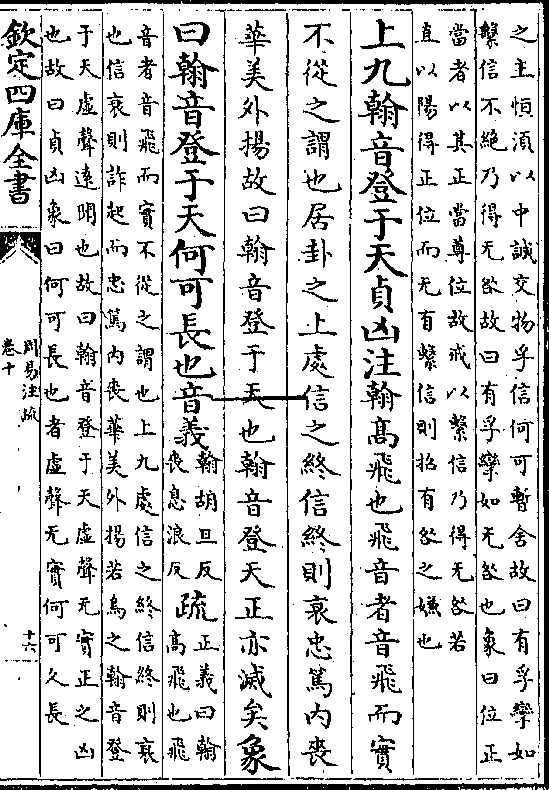 之主恒須以中誠交物孚信何可暫舍故曰有孚攣如
繫信不絶乃得无咎故曰有孚攣如无咎也象曰位正
當者以其正當尊位故戒以繫信乃得无咎若
直以陽得正位而无有繫信則招有咎之嫌也
上九翰音登于天貞凶注翰髙飛也飛音者音飛而實
不從之謂也居卦之上處信之終信終則衰忠篤内喪
華美外揚故曰翰音登于天也翰音登天正亦滅矣象
曰翰音登于天何可長也音義翰胡旦反
喪息浪反疏正義曰翰
髙飛也飛
音者音飛而實不從之謂也上九處信之終信終則衰
也信衰則詐起而忠篤内喪華美外揚若鳥之翰音登
于天虚聲逺聞也故曰翰音登于天虚聲无實正之凶
也故曰貞凶象曰何可長也者虚聲无實何可久長
欽定四庫全書
周易注疏
卷十
十六